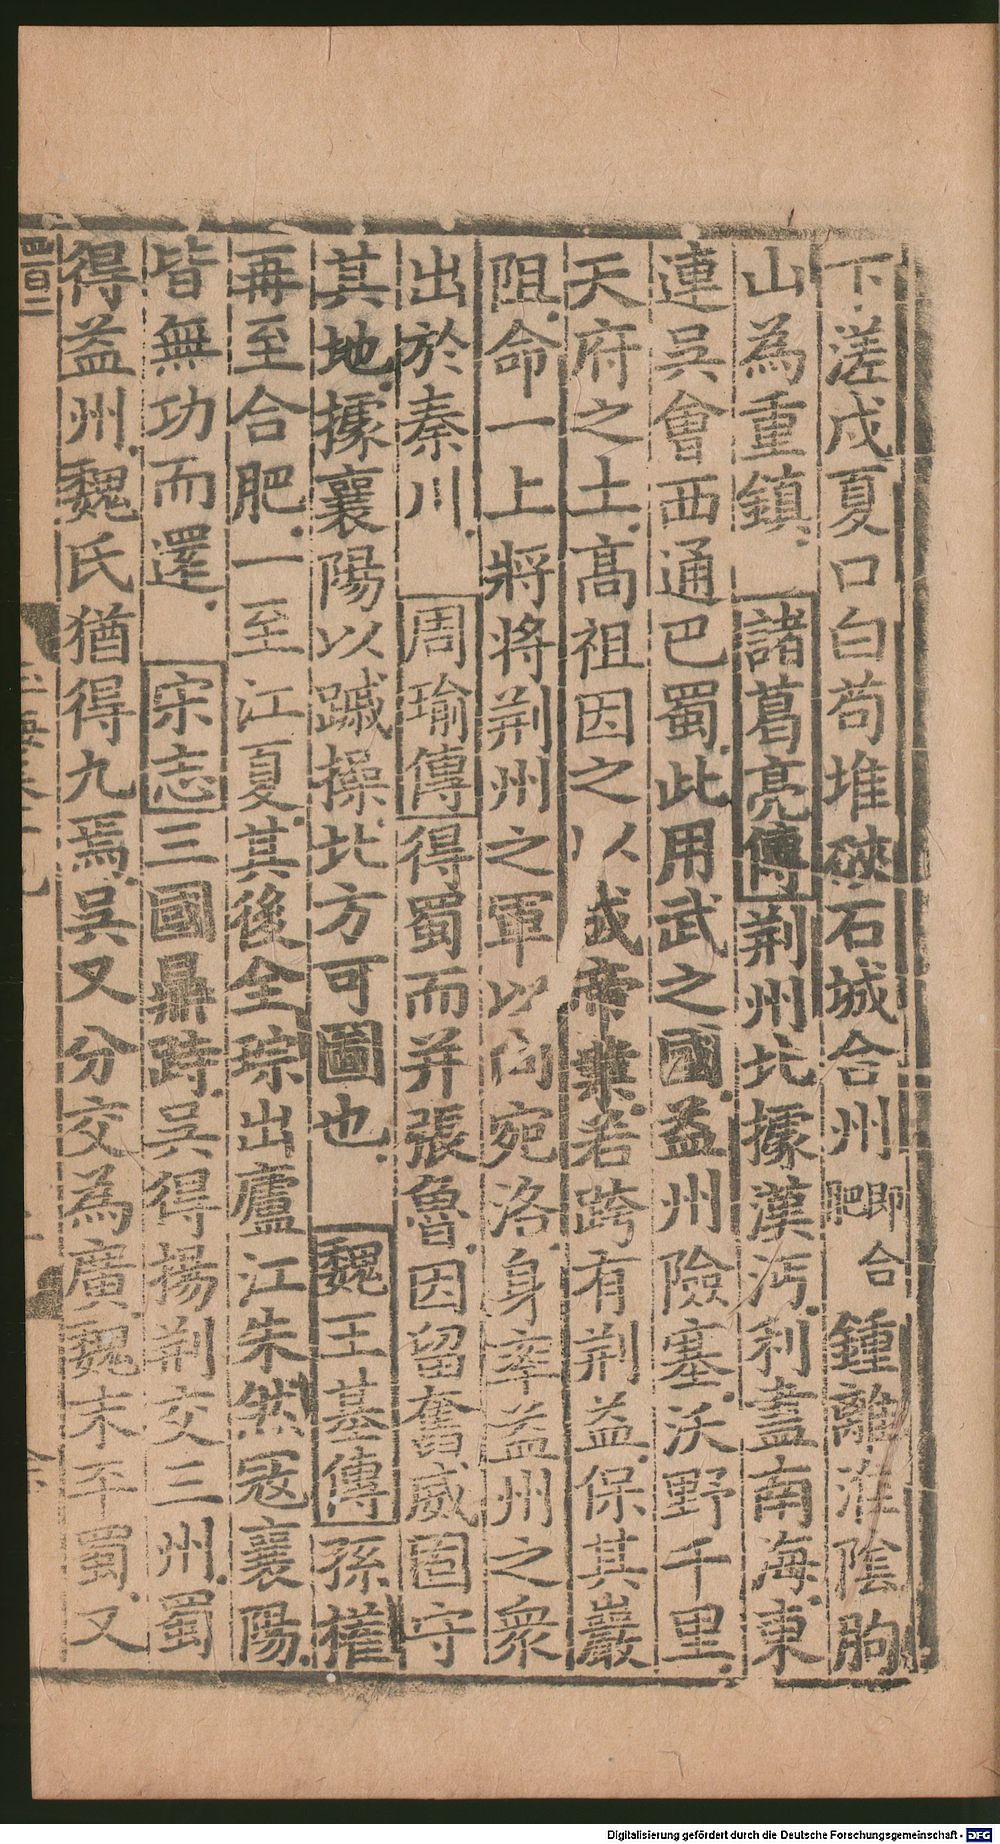 下溠戍夏口白苟堆硤石城合州即合肥鍾離淮陰朐
山為重鎮諸葛亮傳荊州北據漢沔利盡南海東
連吳會西通巴蜀此用武之國益州險塞沃野千里
天府之土高祖因之以成帝業若跨有荊益保其巖
阻命一上將將荊州之軍以向宛洛身率益州之衆
出於秦川周瑜傳得蜀而并張魯因留奮威固守
其地據襄陽以蹴操北方可圖也魏王基傳孫權
再至合肥一至江夏其後全琮出廬江朱然寇襄陽
皆無功而還宋志三國鼎時吳得揚荊交三州蜀
得益州魏氏猶得九焉吳又分交為廣魏末平蜀又
四百二
Digitalisierung gefördert durch die Deutsche Forschungsgemeinschaft - DFG